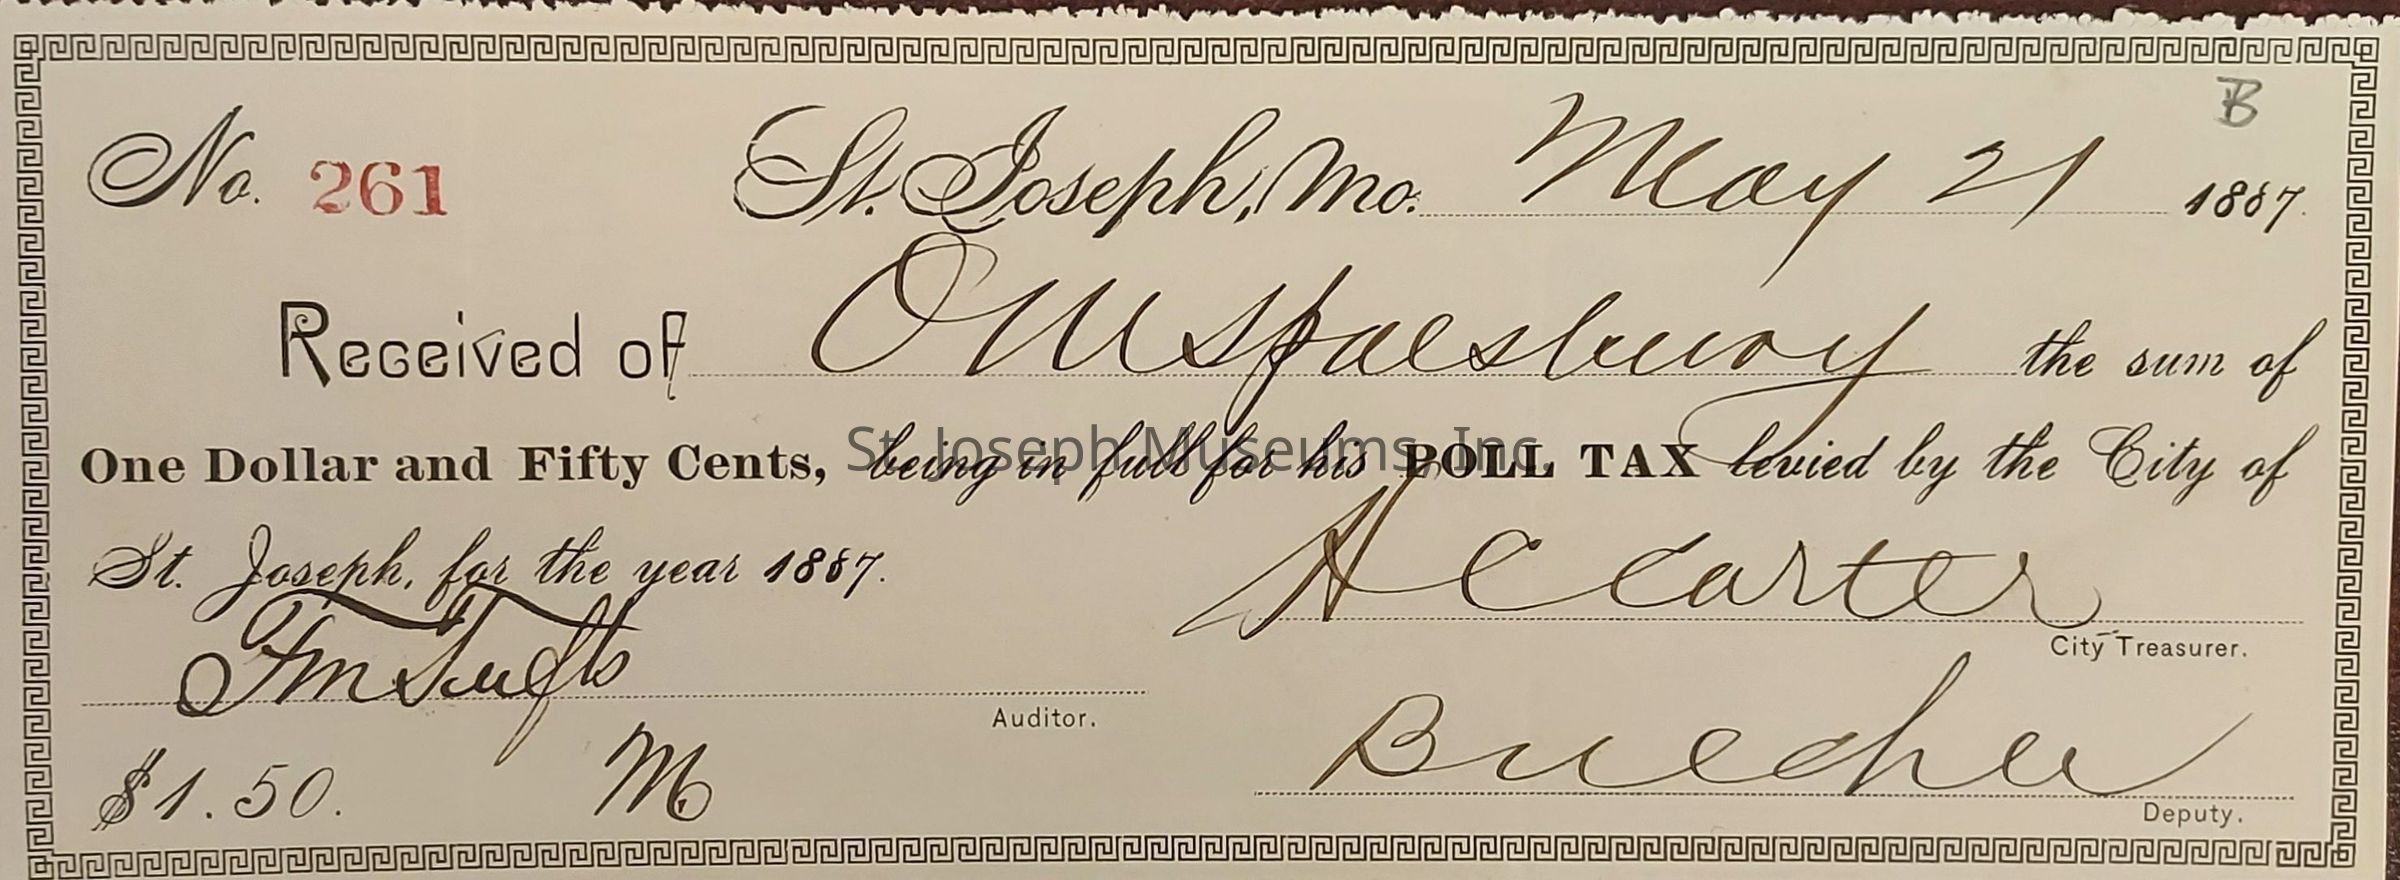 B
No. 261 St. Joseph, Mo. May 21 1887.
Received of O M Spalsbury the sum of
One Dollar and Fifty Cents, being in full for his POLL TAX levied by the City of
St. Joseph Museums, Inc.
St. Joseph, for the year 1887.
H C Carter
City Treasurer.
Tufts
Auditor.
$1.50. M
Deputy.